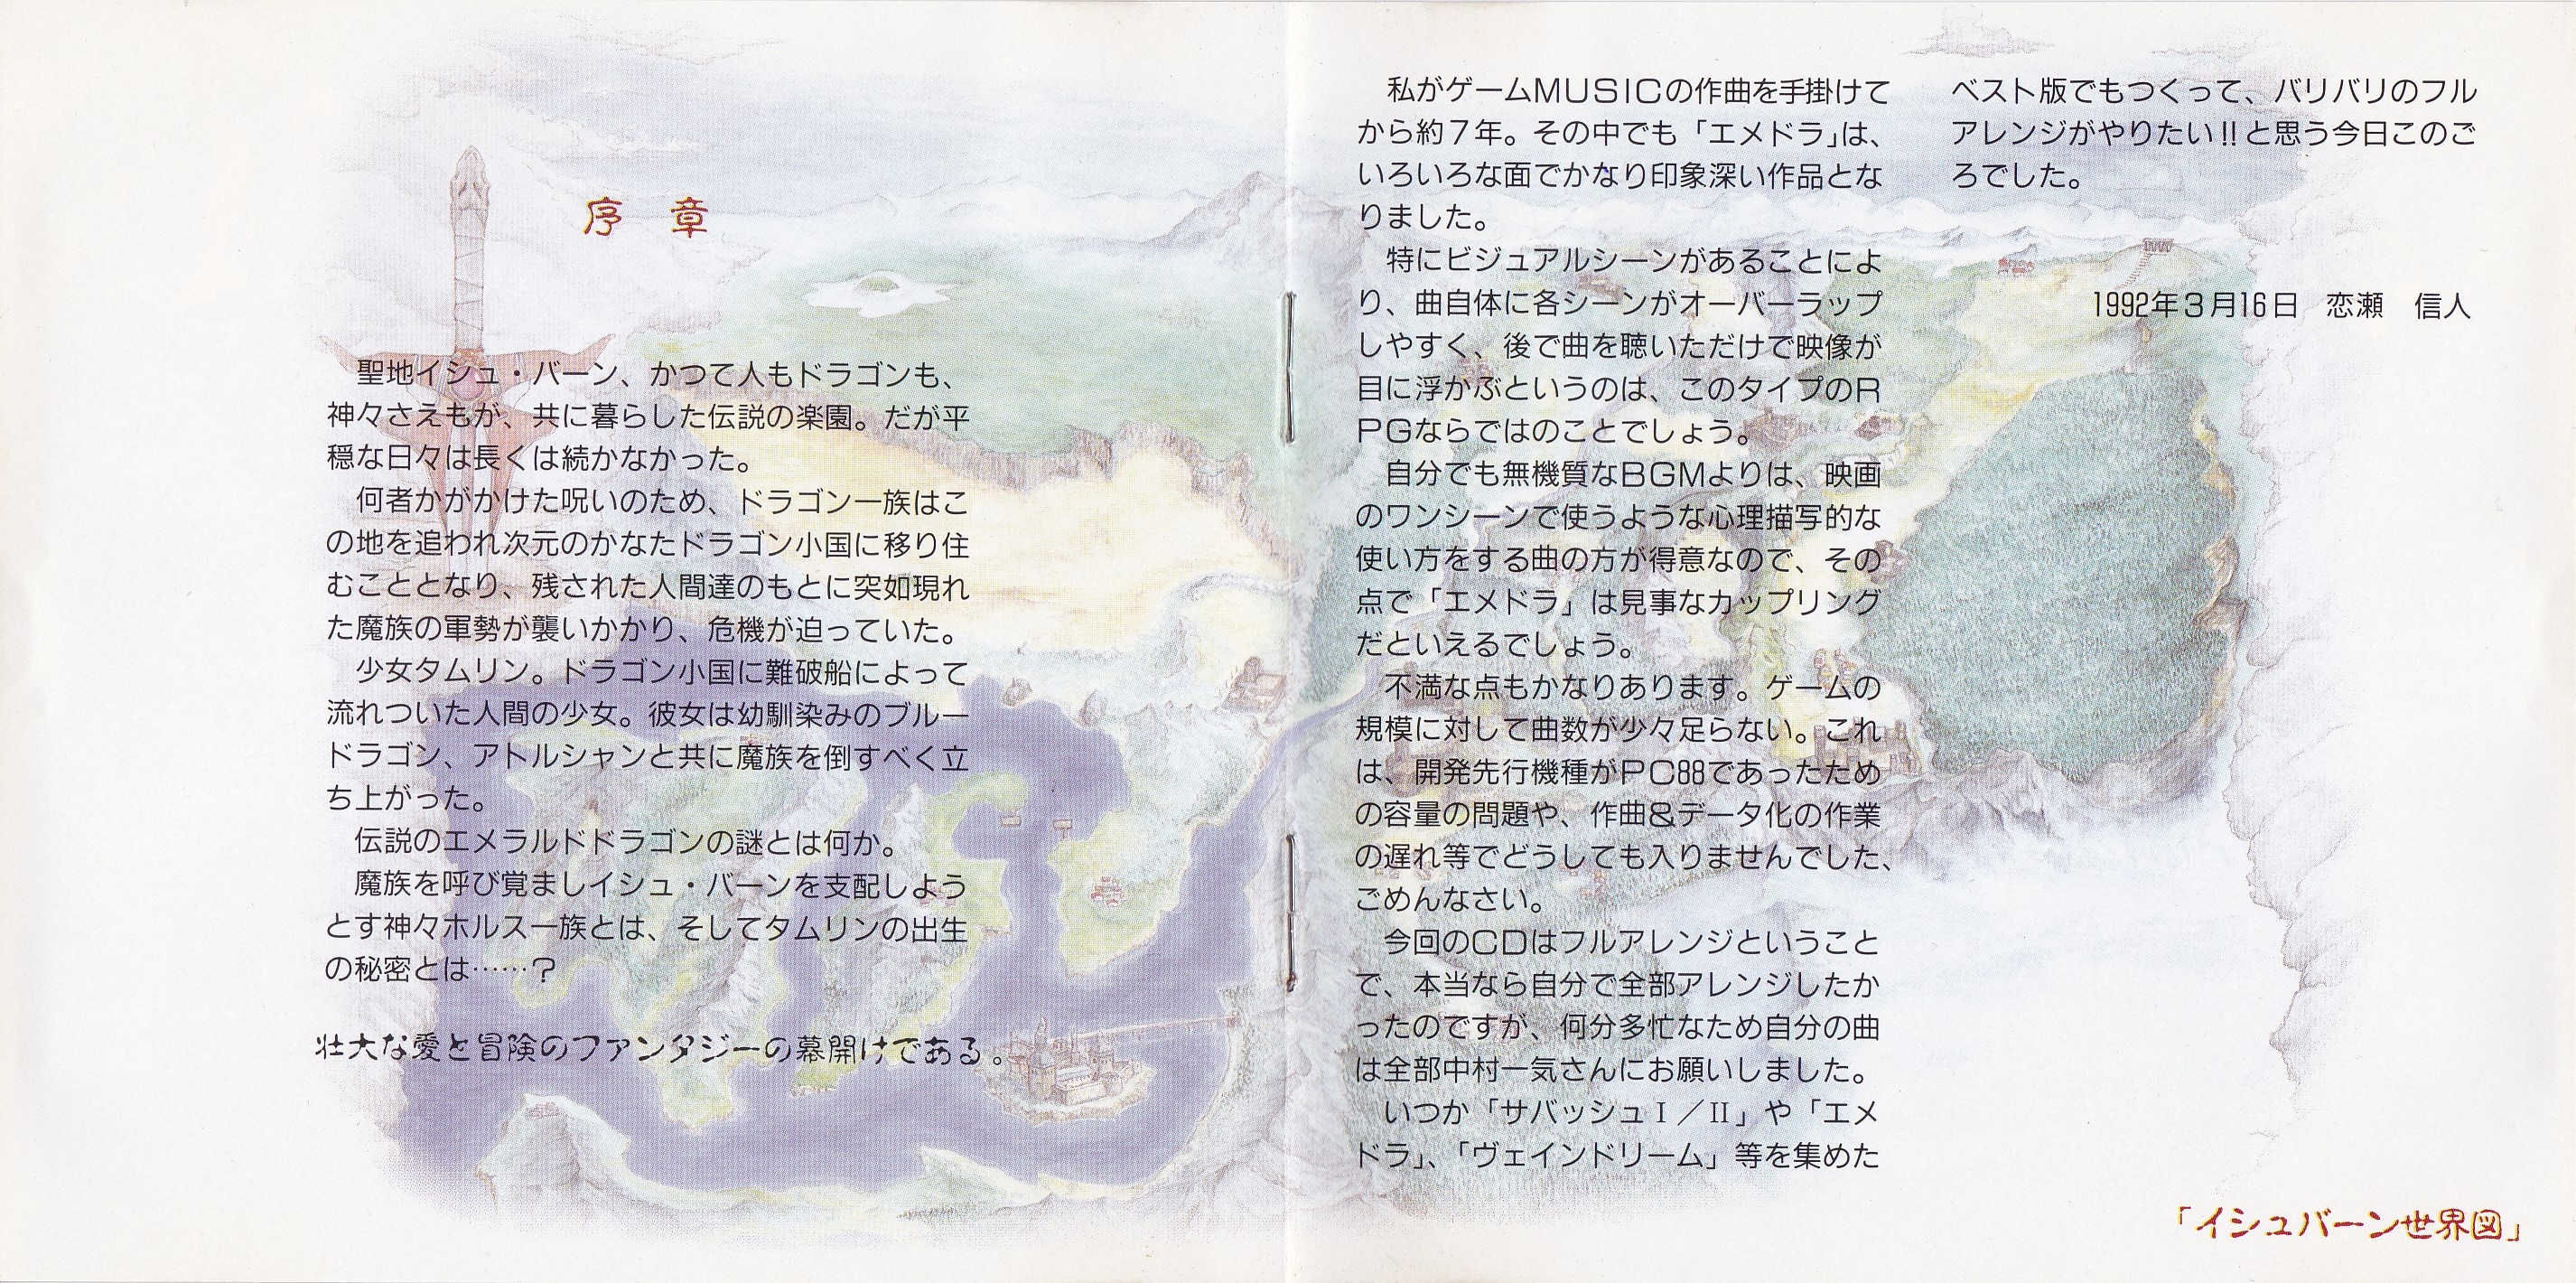 序 章
聖地イシュ・バーン、かつて人もドラゴンも、
神々さえもが、共に暮らした伝説の楽園。だが平
穏な日々は長くは続かなかった。
何者かがかけた呪いのため、ドラゴン一族はこ
の地を追われ次元のかなたドラゴン小国に移り住
むこととなり、残された人間達のもとに突如現れ
た魔族の軍勢が襲いかかり、危機が迫っていた。
少女タムリン。ドラゴン小国に難破船によって
流れついた人間の少女。彼女は幼馴染みのブルー
ドラゴン、アトルシャンと共に魔族を倒すべく立
ち上がった。
伝説のエメラルドドラゴンの謎とは何か。
魔族を呼び覚ましイシュ・バーンを支配しよう
とす神々ホルス一族とは、そしてタムリンの出生
の秘密とは……？
壮大な愛と冒険のファンタジーの幕開けである。
私がゲームMUSICの作曲を手掛けて
から約７年。その中でも「エメドラ」は、
いろいろな面でかなり印象深い作品とな
りました。
特にビジュアルシーンがあることによ
り、曲自体に各シーンがオーバーラップ
しやすく、後で曲を聴いただけで映像が
目に浮かぶというのは、このタイプのR
PGならではのことでしょう。
自分でも無機質なBGMよりは、映画
のワンシーンで使うような心理描写的な
使い方をする曲の方が得意なので、その
点で「エメドラ」は見事なカップリング
だといえるでしょう。
不満な点もかなりあります。ゲームの
規模に対して曲数が少々足らない。これ
は、開発先行機種がPC88であったため
の容量の問題や、作曲&データ化の作業
の遅れ等でどうしても入りませんでした、
ごめんなさい。
今回のCDはフルアレンジということ
で、本当なら自分で全部アレンジしたか
ったのですが、何分多忙なため自分の曲
は全部中村一気さんにお願いしました。
いつか「サバッシュⅠ／Ⅱ」や「エメ
ドラ」、「ヴェインドリーム」等を集めた
ベスト版でもつくって、バリバリのフル
アレンジがやりたい!!と思う今日このご
ろでした。
1992年３月16日 恋瀬 信人
「イシュバーン世界図」